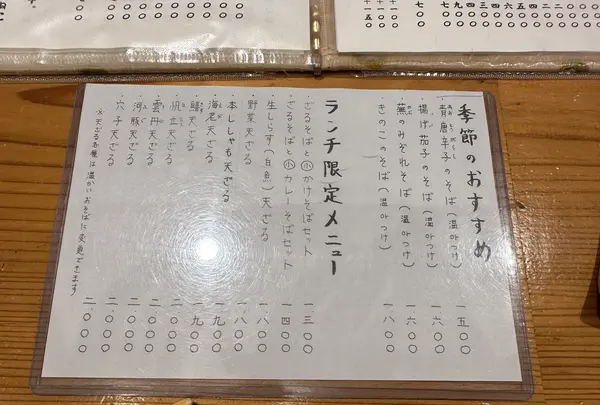 季節のおすすめ
・青唐辛子のそば(温 or つけ) 一、五〇〇
・揚げ茄子のそば(温 or つけ) 一、六〇〇
・蕪のみぞれそば(温 or つけ) 一、六〇〇
・きのこのそば(温 or つけ) 一、八〇〇
ランチ限定メニュー
・ざるそばと㋛かけそばセット 一、三〇〇
・ざるそばと小カレーそばセット 一、四〇〇
・生しらす(白魚)天ざる 一、八〇〇
・野菜天ざる 一、八〇〇
・本ししゃも天ざる 一、九〇〇
・海老天ざる 一、九〇〇
・鱚天ざる 二、〇〇〇
・帆立天ざる 二、〇〇〇
・雲丹天ざる 二、〇〇〇
・河豚天ざる 二、〇〇〇
・穴子天ざる 二、〇〇〇
※天ざる各種は温かいおそばに変更できます